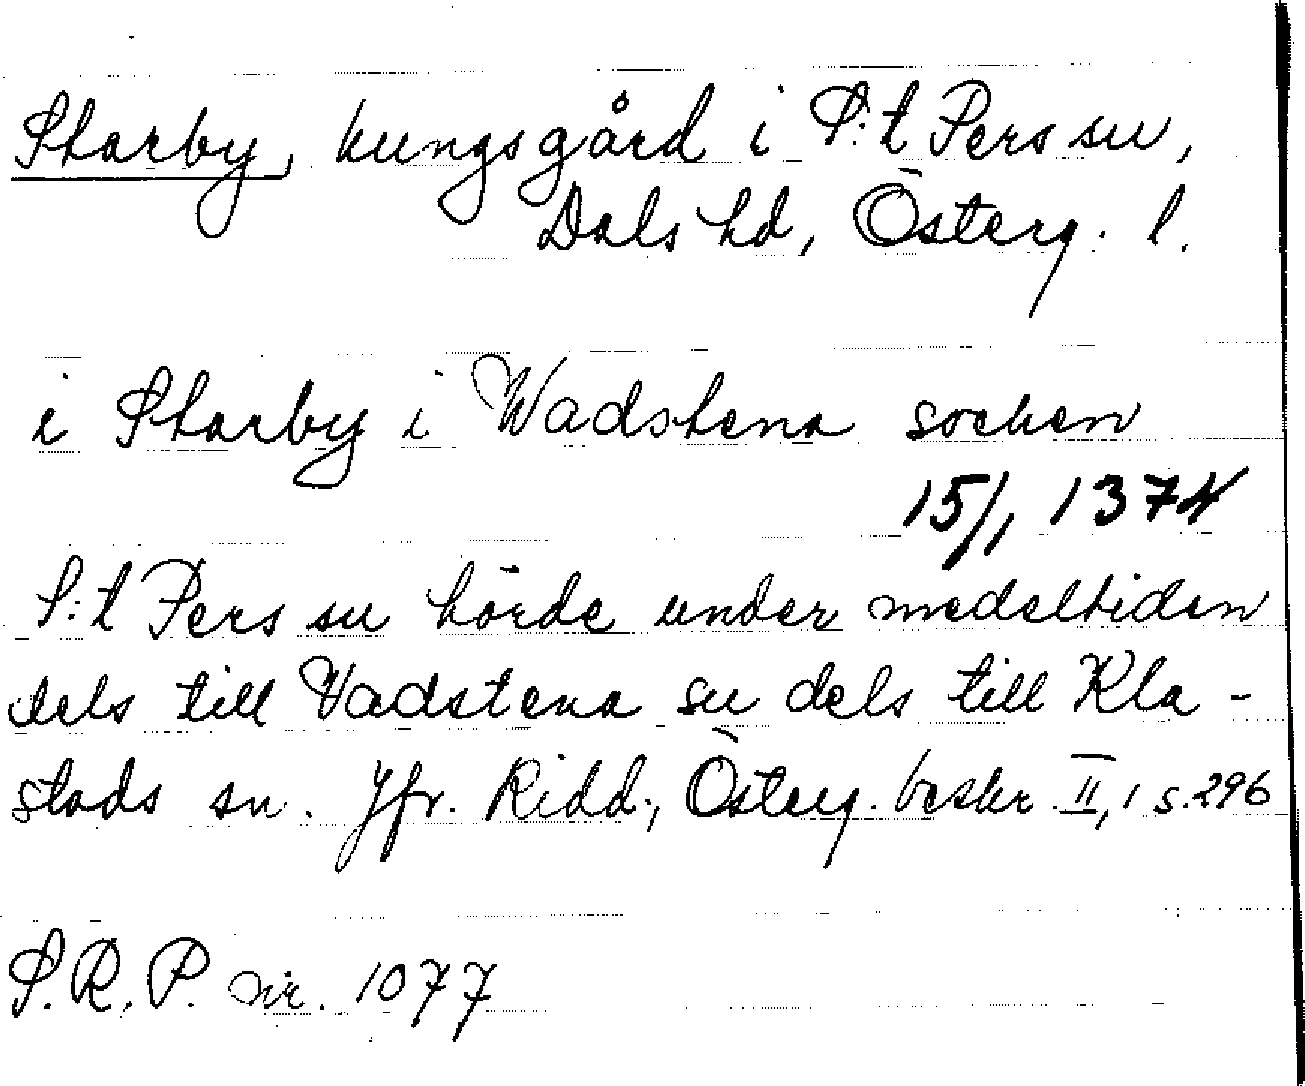 Starby, kungsgård i S:t Pers sn,
Dals hd, Österg. l.
i Starby i Wadstena socken
15/1 1374
S:t Pers sn hörde under medeltiden
dels till Vadstena sn dels till Kla-
stads sn. Jfr. Ridd., Österg. beskr II, 1 s. 296
S.R.P. nr. 1077